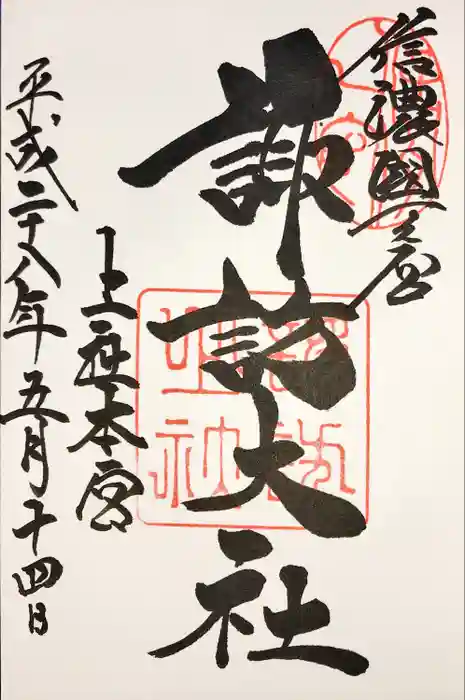 信濃國一之宮
諏訪大社
上社本宮
平成二十八年五月十四日
諏訪明神